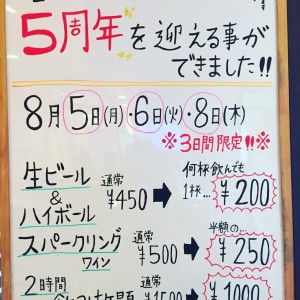 5周年を迎える事が
できました!!
8月5日(月)・6日(火)・8日(木)
※3日間限定!!※
生ビール
&
ハイボール
通常
¥450
何杯飲んでも
1杯…¥200
スパークリング
ワイン
通常
¥500
半額の…
¥250
2時間